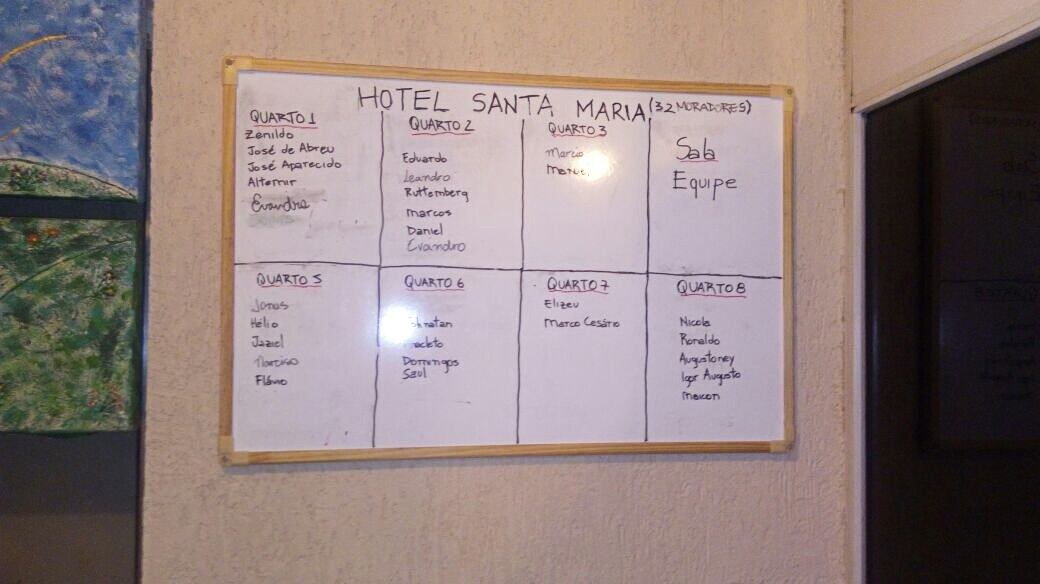 HOTEL SANTA MARIA (32 MORADORES)
QUARTO 1
Zenildo
José de Abreu
José Aparecido
Altemir
Evandro
QUARTO 2
Eduardo
Leandro
Ruttemberg
Marcos
Daniel
Evandro
QUARTO 3
Marcio
Sala
Equipe
QUARTO 5
Jonas
Hélio
Jaziel
Narciso
Flávio
QUARTO 6
Domingos
Saul
QUARTO 7
Elizeu
Marco Cesário
QUARTO 8
Nicola
Ronaldo
Augustoney
Igor Augusto
Maicon